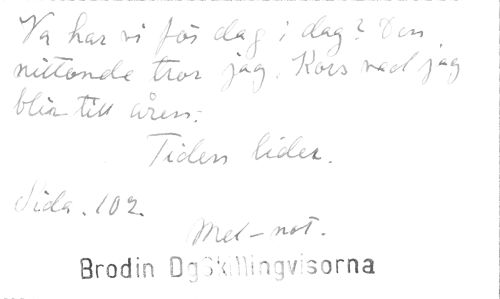 Va har vi för dag i dag? Den
nittonde tror jag. Kors vad jag
blir till åren.
Tiden lider.
Sida. 102.
Mel-not.
Brodin DgSkillingvisorna